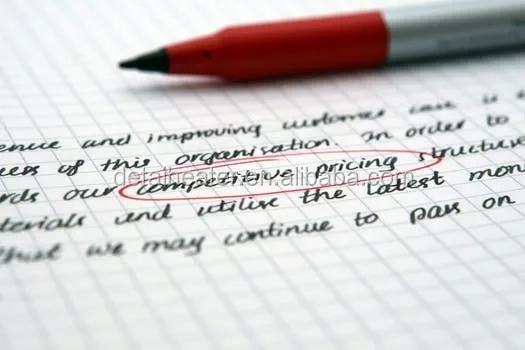 ence and improving customer care is
uers of this organisation. In order to
rds our competitive pricing structure
terials and utilise the latest mon
that we may continue to pass on
detailheater.en.alibaba.com